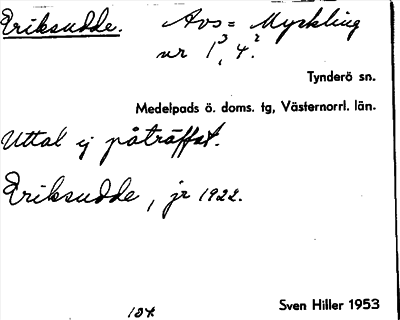 Eriksudde. Avs = Myckling
nr 1³, 4².
Tynderö sn.
Medelpads ö. doms. tg, Västernorrl. län.
Uttal ej påträffat.
Eriksudde, jr 1922.
124
Sven Hiller 1953